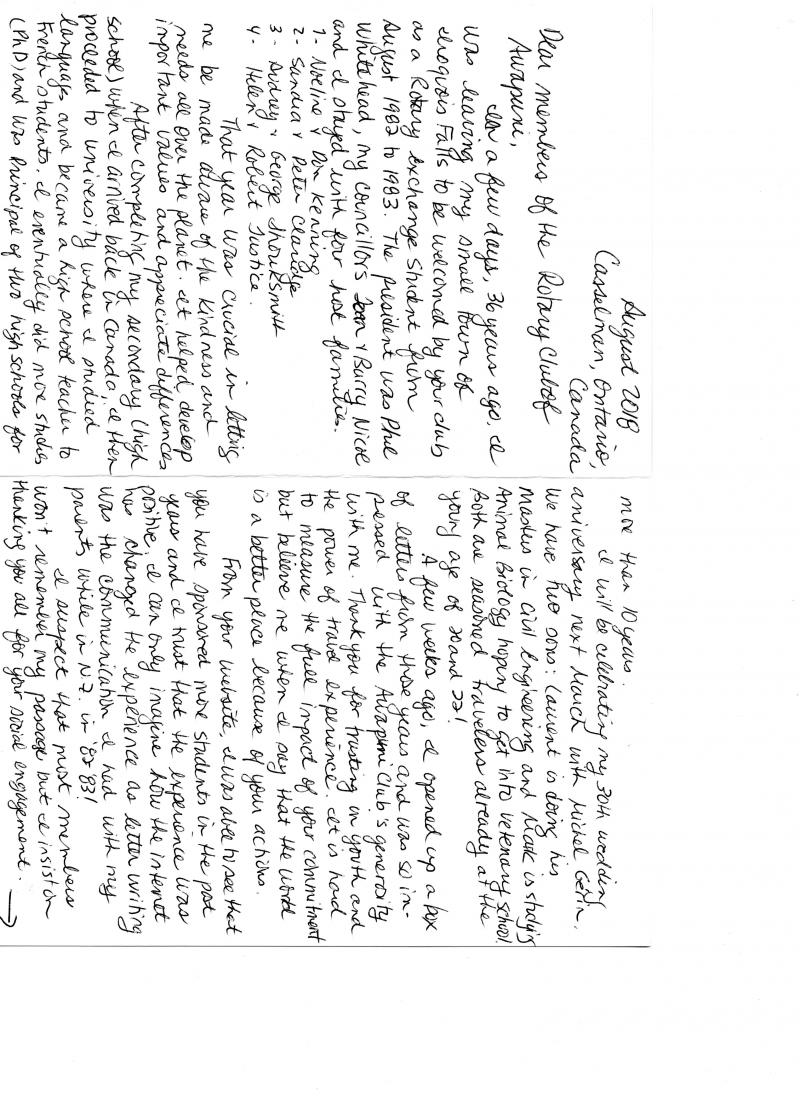 August 2018
Casselman, Ontario,
Canada
Dear members of the Rotary Club of
Awapuni,
In a few days, 36 years ago, I
was leaving my small town of
Iroquois Falls to be welcomed by your club
as a Rotary Exchange Student from
August 1982 to 1983. The president was Phil
Whitehead, my councillors Joan & Barry Nicol
and I stayed with four host families.
1- Noeline & Don Kenning
2- Sandra & Peter Claridge
3- Audrey & George Shouksmith
4- Helen & Robert Justice.
That year was crucial in letting
me be made aware of the kindness and
needs all over the planet. It helped develop
important values and appreciate differences
After completing my secondary (high
school) when I arrived back in Canada, I then
proceded to university where I studied
languages and became a high school teacher to
French students. I esentially did more studies
(PhD) and was Principal of two high schools for
more than 10 years.
I will be celebrating my 30th wedding
aniversary next March with Michel Gérin.
We have two sons: Laurent is doing his
Masters in Civil Engineering and Mark is studying
Animal Biology hoping to get into vetenary school.
Both are seasoned travelers already at the
young age of 20 and 22!
A few weeks ago, I opened up a box
of letters from those years and was so im-
pressed with the Awapuni Club's generosity
with me. Thank you for trusting in youth and
the power of travel experience. It is hard
to measure the full impact of your commitment
but believe me when I say that the world
is a better place because of your actions.
From your website, I was able to see that
you have sponsored more students in the past
years and I trust that the experience was
positive. I can only imagine how the internet
has changed the experience as letter writing
was the communication I had with my
parents while in N.Z. in '82-'83!
I suspect that most members
won't remember my passage but I insist on
thanking you all for your social engagement. →